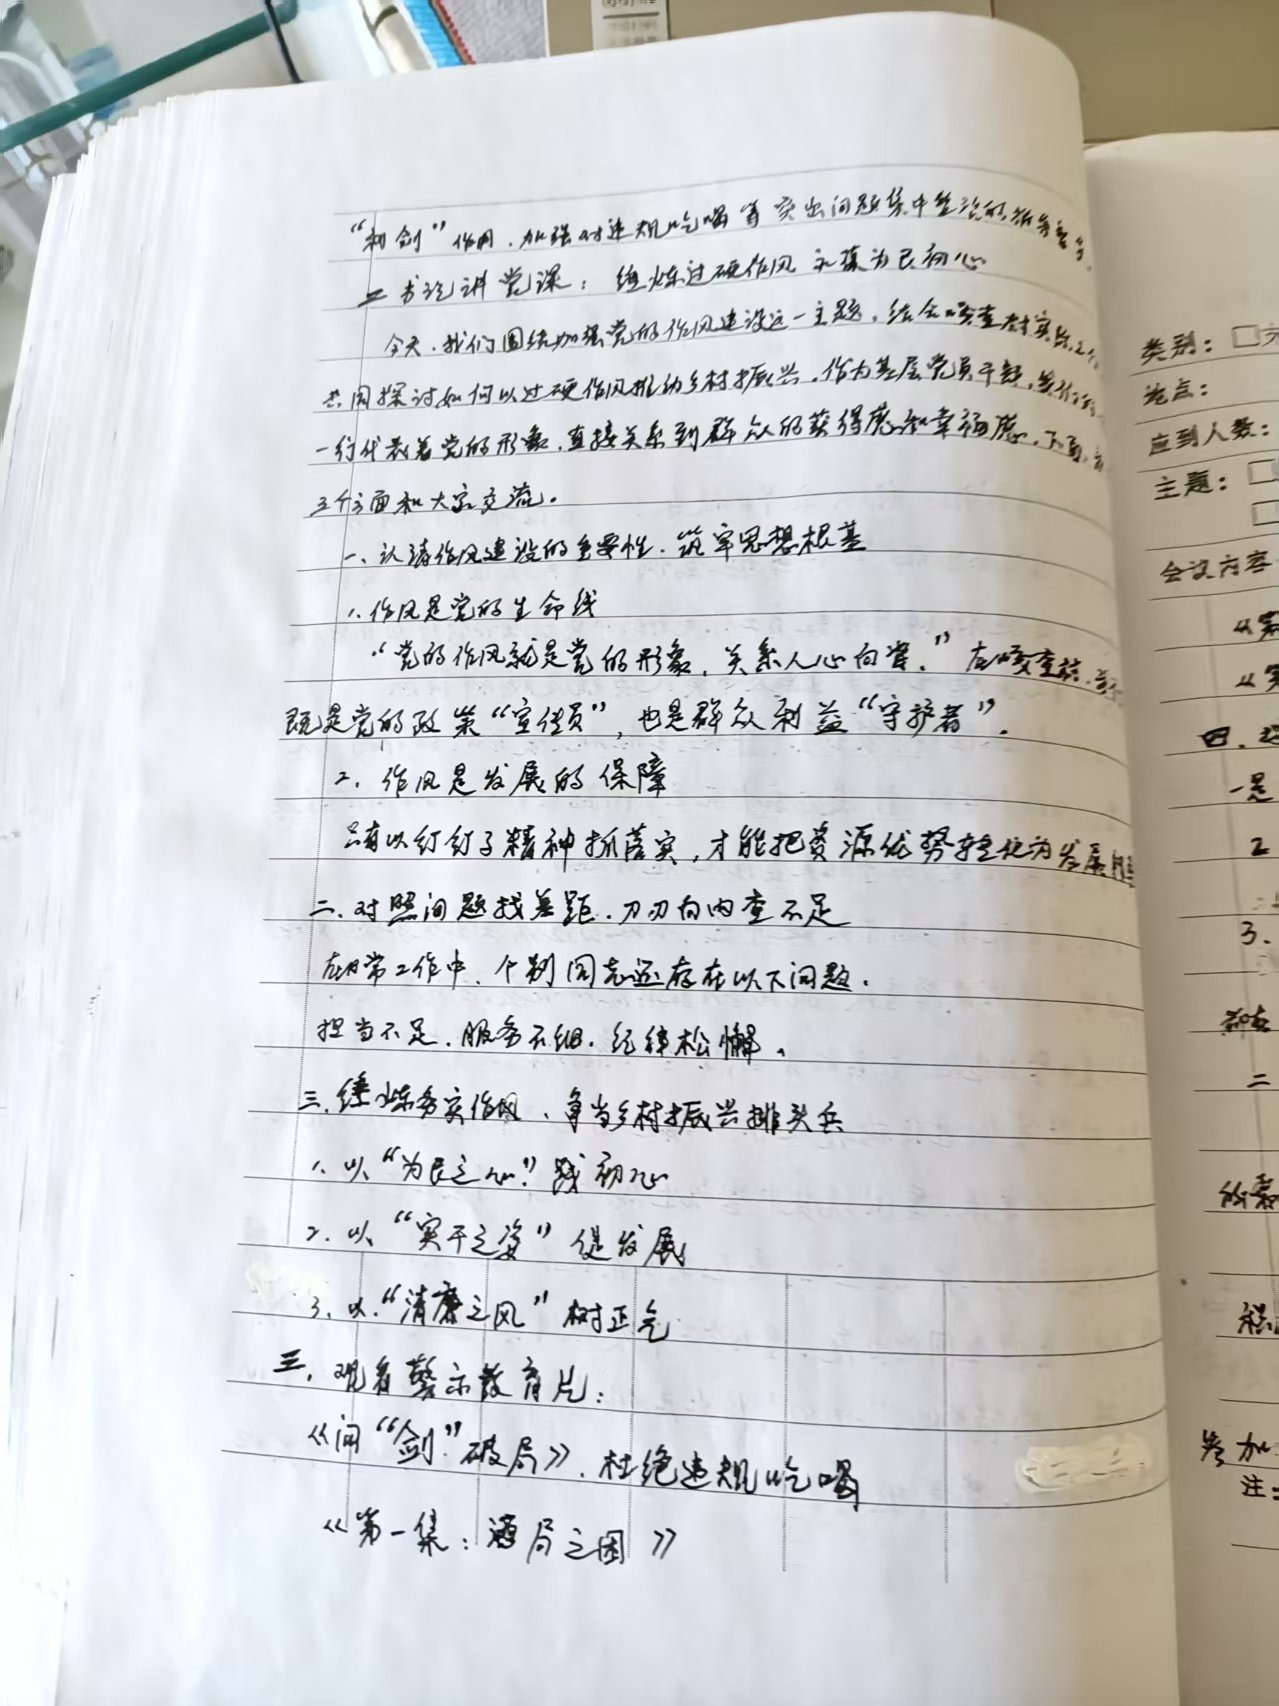 “利剑”作用，加强对违规吃喝等突出问题集中整治的
二 书记讲党课：锤炼过硬作风 永葆为民初心
今天，我们围绕加强党的作风建设这一主题，结合
共同探讨如何以过硬作风推动乡村振兴，作为基层党员干部，
一行代表着党的形象，直接关系到群众的获得感和幸福感，下面，
三个方面和大家交流。
一、认清作风建设的重要性，筑牢思想根基
1、作风是党的生命线
“党的作风就是党的形象，关系人心向背，”在
既是党的政策“宣传员”，也是群众利益“守护者”。
2、作风是发展的保障
只有以钉钉子精神抓落实，才能把资源优势转化为发展
二、对照问题找差距，刀刃向内查不足
在日常工作中，个别同志还存在以下问题，
担当不足，服务不细，纪律松懈。
三、锤炼务实作风，争当乡村振兴排头兵
1、以“为民之心”践初心
2、以“实干之姿”促发展
3、以“清廉之风”树正气
三、观看警示教育片：
《问“剑”破局》，杜绝违规吃喝
《第一集：酒局之困》
类别：
地点：
应到人数：
主题：
会议内容
四、
一是
2
3、
二
参加
注：